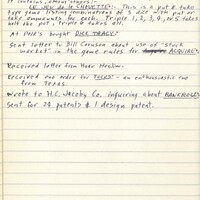 it contains, among others:
LE JEU de la CHOUETTE: This is a put & take
type game listing combinations of 3 dice with put or
take ammounts for each. Triple 1, 2, 3, 4, to 5 takes
half the pot, triple 6 takes all.
At PMA's bought DICK TRACY!
Sent letter to Bill Caruson about use of "stock
market" in the game rules for ACQUIRE.
Received letter from Nader Mealim.
Received one order for FOCUS - an enthusiastic one
from Texas.
Wrote to H.C. Jacoby Co. inquiring about BANKROLL!
Sent for 28 patents & 1 design patent.